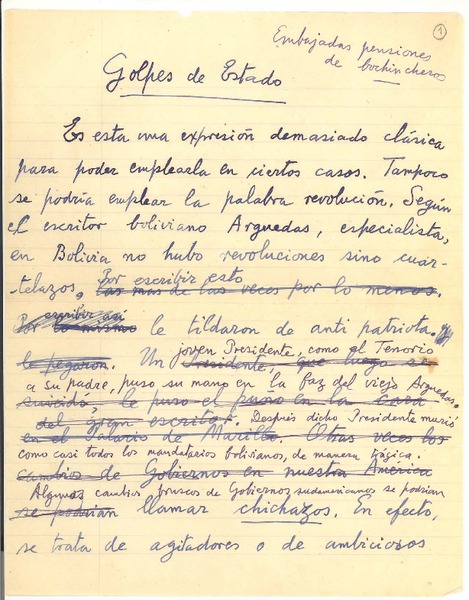 1
Embajadas pensiones
de bochincheros
Golpes de Estado
Es esta una expresión demasiado clásica
para poder emplearla en ciertos casos. Tampoco
se podría emplear la palabra revolución. Según
el escritor boliviano Arguedas, especialista,
en Bolivia no hubo revoluciones sino cuar-
Por escribir esto
-telazos, las más de las veces por lo menos.
escribir así
Por lo mismo le tildaron de anti patriota.
joven Presidente, como el Tenorio
le pegaron. Un Presidente, que luego se
a su padre, puso su mano en la faz del viejo Arguedas.
suicidó, le puso el puño en la cara
del gran escritor. Después dicho Presidente murió
en el Palacio de Murillo. Otras veces los
como casi todos los mandatarios bolivianos, de manera trágica.
cambios de Gobiernos en nuestra América
Algunos cambios bruscos de Gobiernos sudamericanos se podrían
se podrían llamar chichazos. En efecto,
se trata de agitadores o de ambiciosos